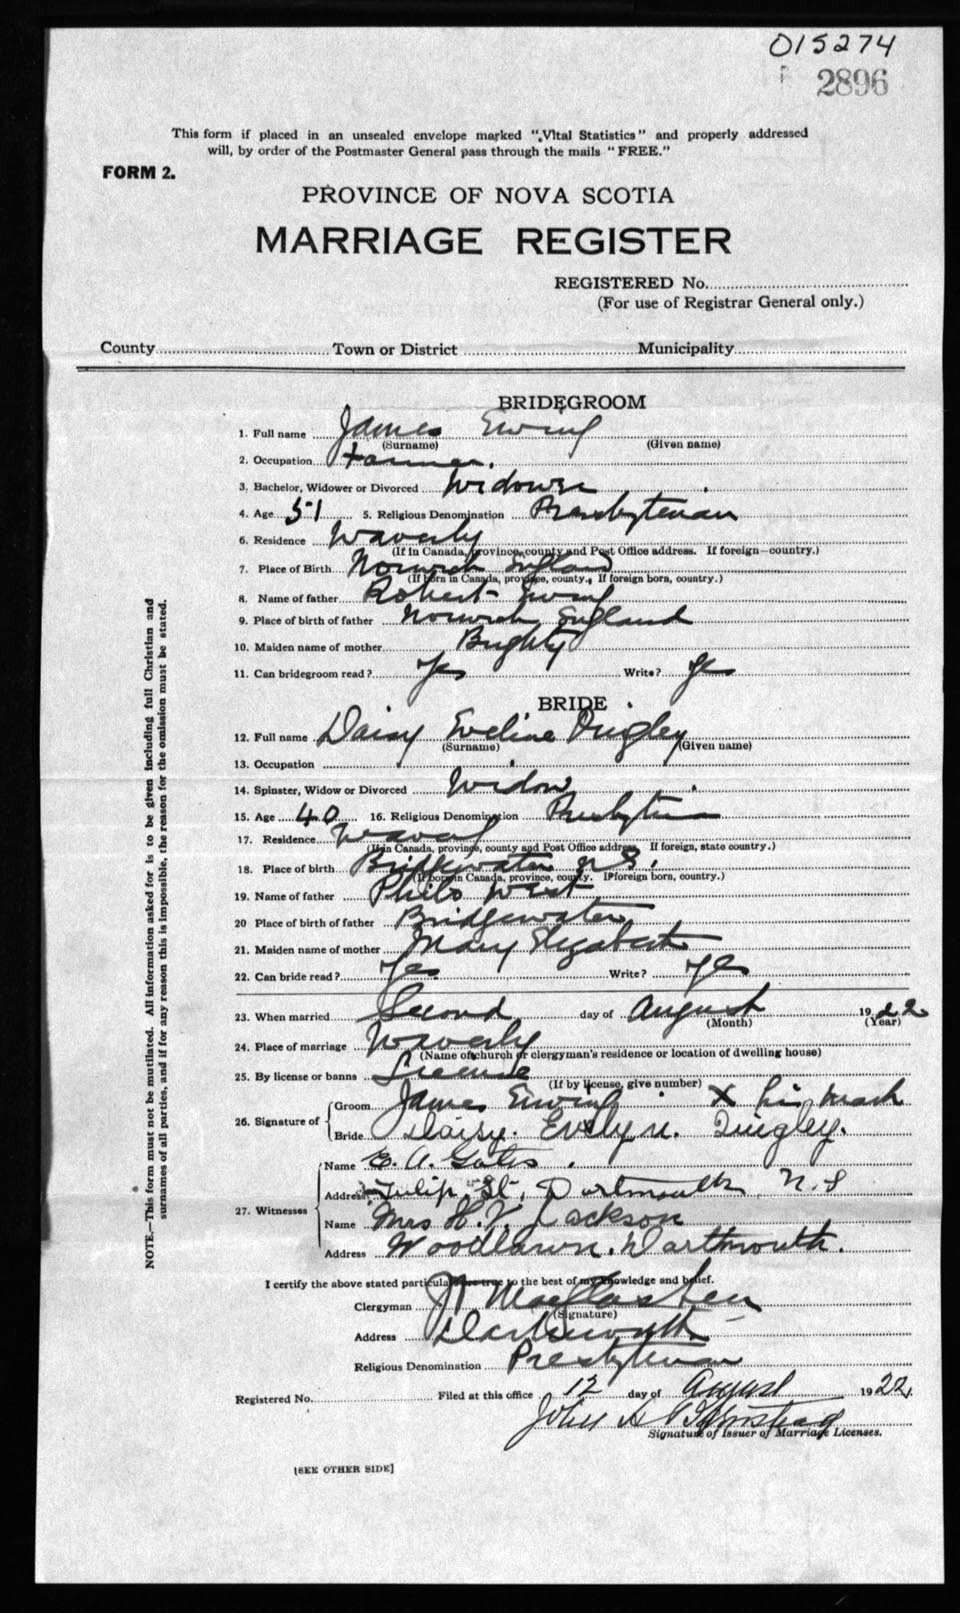 015274
2896
This form if placed in an unsealed envelope marked "Vital Statistics" and properly addressed
will, by order of the Postmaster General pass through the mails "FREE."
FORM 2.
PROVINCE OF NOVA SCOTIA
MARRIAGE REGISTER
REGISTERED No.
(For use of Registrar General only.)
County Town or District Municipality
BRIDEGROOM
1. Full name James Ewing
(Surname) (Given name)
2. Occupation
3. Bachelor, Widower or Divorced Widower
4. Age 51 5. Religious Denomination Presbyterian
6. Residence Waverly
(If in Canada, province, county and Post Office address. If foreign—country.)
7. Place of Birth Norwich England
(If born in Canada, province, county. If foreign born, country.)
8. Name of father Robert Ewing
9. Place of birth of father Norwich England
10. Maiden name of mother Brighty
11. Can bridegroom read? Yes Write? Yes
BRIDE
12. Full name Daisy Eveline Quigley
(Surname) (Given name)
13. Occupation
14. Spinster, Widow or Divorced Widow
15. Age 40 16. Religious Denomination Presbyterian
17. Residence Waverly
(If in Canada, province, county and Post Office address. If foreign, state country.)
18. Place of birth Bridgewater N.S.
(If born in Canada, province, county. If foreign born, country.)
19. Name of father Philo West
20 Place of birth of father Bridgewater
21. Maiden name of mother Mary Elizabeth
22. Can bride read? Yes Write? Yes
23. When married Second day of August 1922
(Month) (Year)
24. Place of marriage Waverly
(Name of church or clergyman's residence or location of dwelling house)
25. By license or banns License
(If by license, give number)
26. Signature of
Groom James Ewing X his mark
Bride Daisy. Evelyn. Quigley.
27. Witnesses
Name E. A. Gates.
Address Tulip St, Dartmouth N.S
Name Mrs H. V. Jackson
Address Woodlawn. Dartmouth.
I certify the above stated particulars are true to the best of my knowledge and belief.
Clergyman
(Signature)
Address Dartmouth
Religious Denomination Presbyterian
Registered No. Filed at this office 12 day of August 1922.
John
Signature of Issuer of Marriage Licenses.
[SEE OTHER SIDE]
NOTE.—This form must not be mutilated. All information asked for is to be given including full Christian and
surnames of all parties, and if for any reason this is impossible, the reason for the omission must be stated.